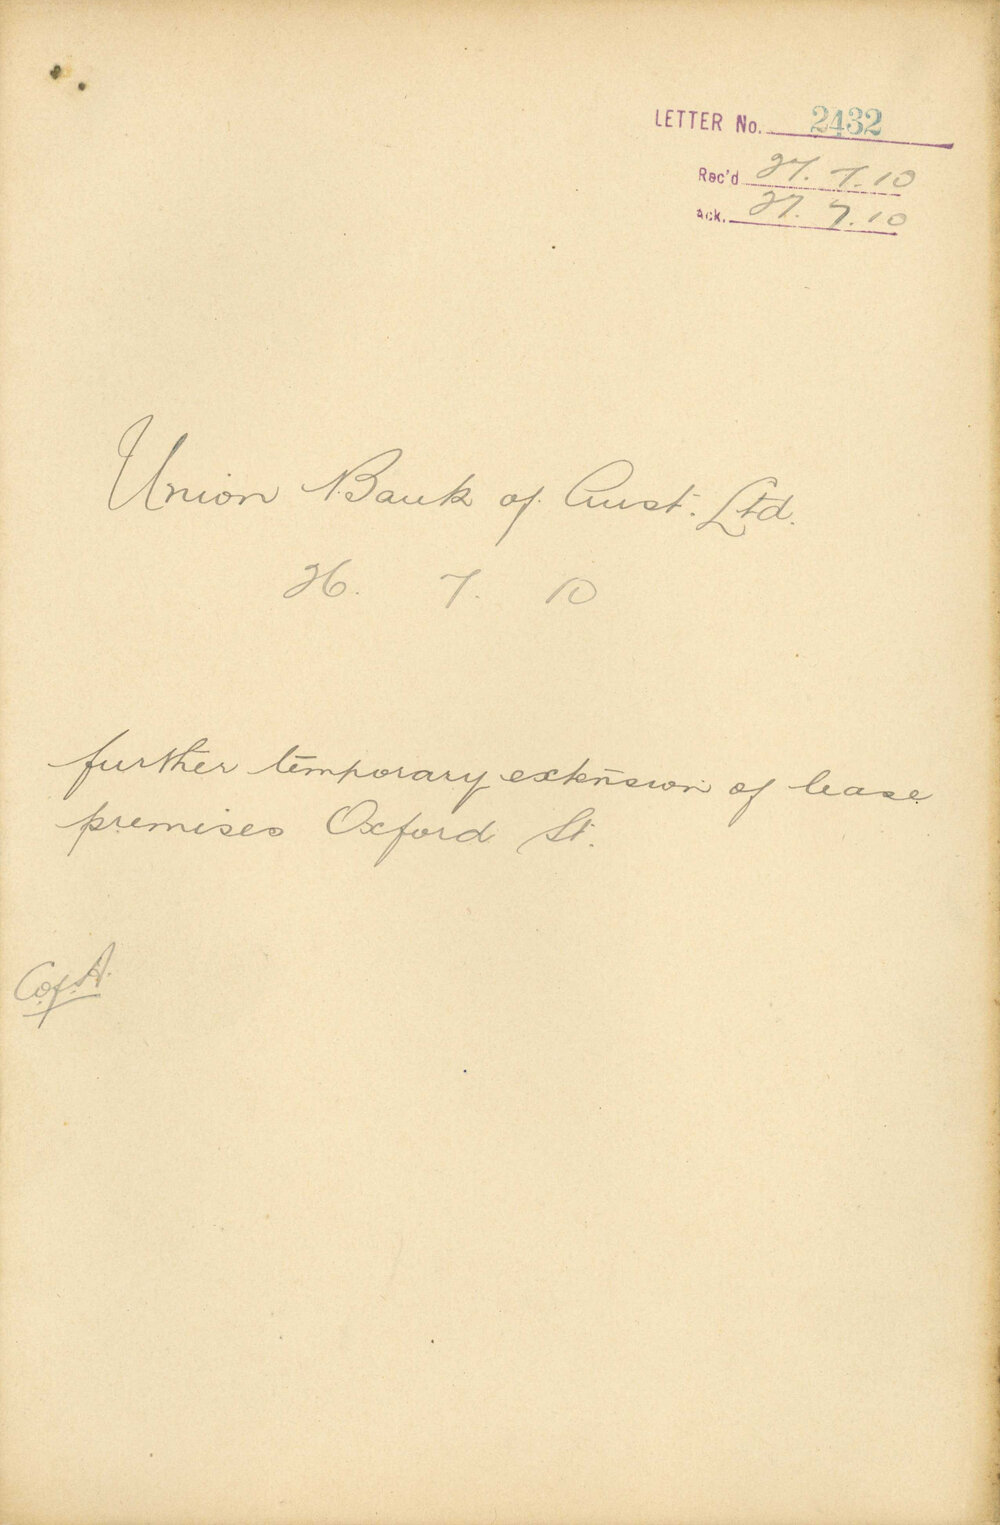 LETTER No. 2432
Rec'd 27.7.10
Ack. 27.7.10
Union Bank of Aust. Ltd.
26. 7. 10
further temporary extension of lease
premises Oxford St.
C of A.